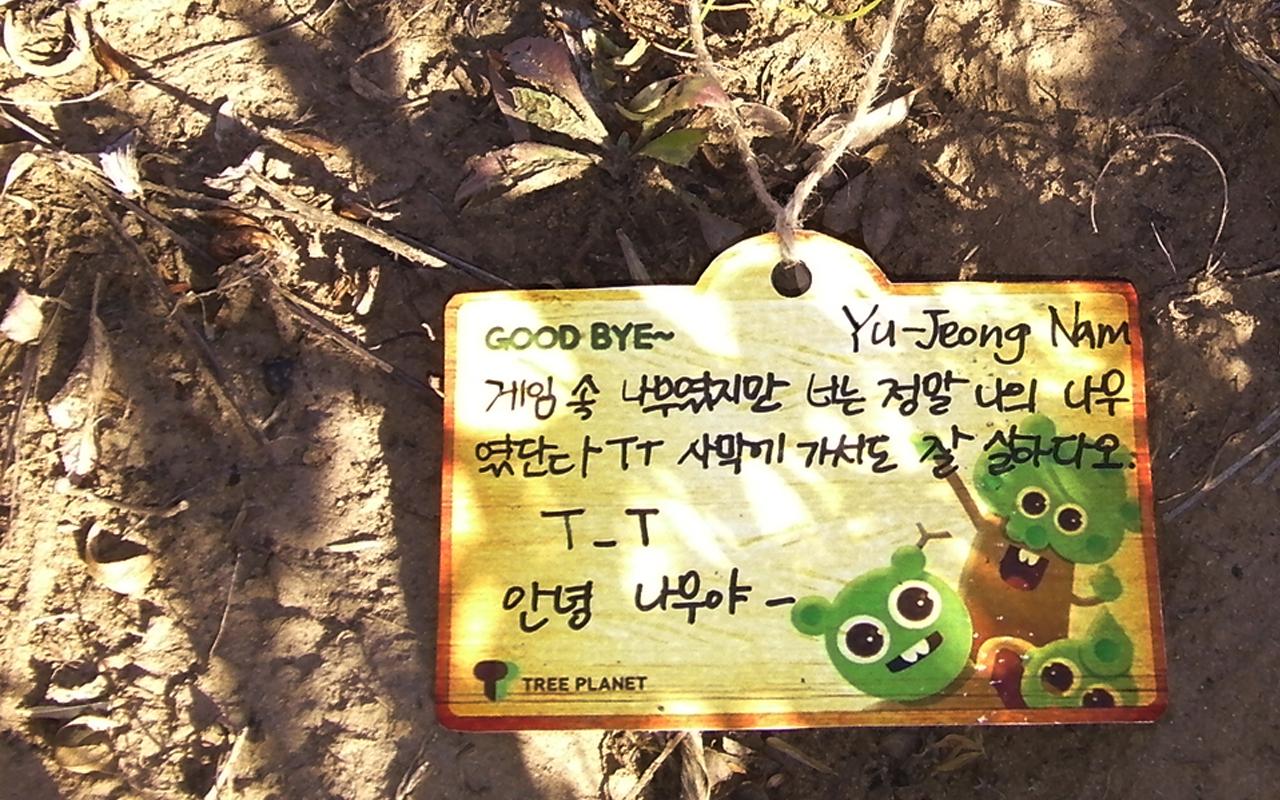 GOOD BYE~
Yu-Jeong Nam
게임 속 나무였지만 너는 정말 나의 나무
였단다 TT 사막에 가서도 잘 살아다오.
T_T
안녕 나무야 -
TREE PLANET